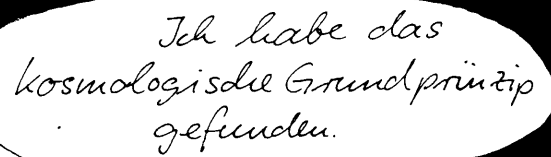 Ich habe das
kosmologische Grundprinzip
gefunden.